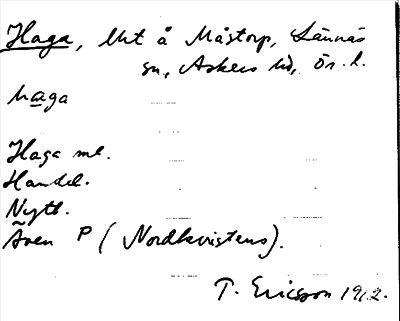 Haga, lht å Måstorp, Lännäs
sn, Askers hd, Ör. l.
haga
Haga ml.
Handel.
Nytt.
Även P (Nordkvistens).
T. Ericsson 1912.